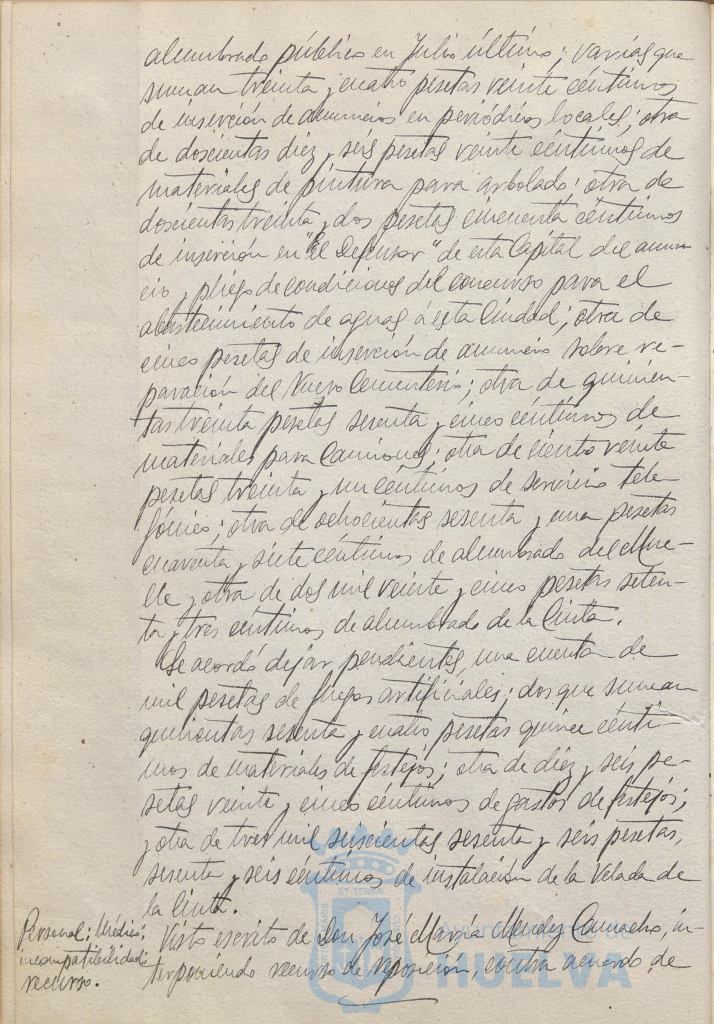 alumbrado público en Julio último; varias que
suman treinta y cuatro pesetas veinte céntimos
de inserción de anuncios en periódicos locales; otra
de doscientas diez y seis pesetas veinte céntimos de
materiales de pintura para arbolado; otra de
doscientas treinta y dos pesetas cincuenta céntimos
de inserción en "El Defensor" de esta Capital del anun
cio y pliego de condiciones del concurso para el
abastecimiento de aguas á esta Ciudad; otra de
cinco pesetas de inserción de anuncio sobre re-
paración del Nuevo Cementerio; otra de quinien-
tas treinta pesetas sesenta y cinco céntimos de
materiales para Camiones; otra de ciento veinte
pesetas treinta y un céntimos de servicio tele
fónico; otra de ochocientas sesenta y una pesetas
cuarenta y siete céntimos de alumbrado del Mue-
lle y otra de dos mil veinte y cinco pesetas seten-
ta y tres céntimos de alumbrado de la Cinta.
Se acordó dejar pendientes, una cuenta de
mil pesetas de fuegos artificiales; dos que suman
quinientas sesenta y cuatro pesetas quince cénti-
mos de materiales de festejos; otra de diez y seis pe-
setas veinte y cinco céntimos de gastos de festejos;
y otra de tres mil seiscientas sesenta y seis pesetas,
sesenta y seis céntimos de instalación de la Velada de
la Cinta.
Personal; Médico;
incompatibilidad;
recurso.
Visto escrito de Don José María Mendez Camacho, in-
terponiendo recurso de reposición, contra acuerdo de
ET TERRA
HUELVA